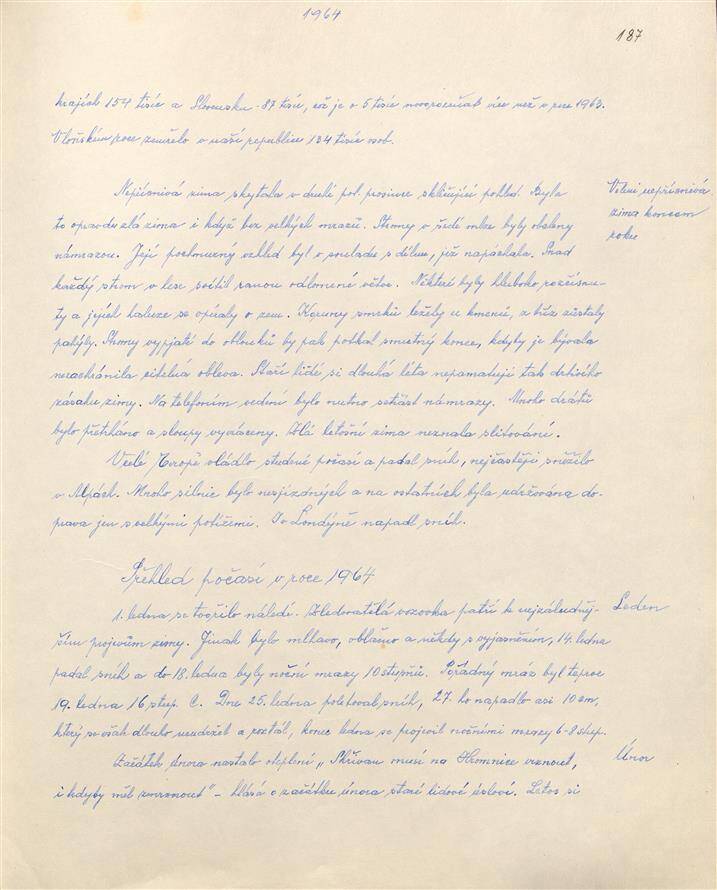 1964
187
krajích 154 tisíc a Slovensku - 87 tisíc, což je o 5 tisíc novorozeňat více než v roce 1963.
V loňském roce zemřelo v naší republice 134 tisíc osob.
Nepříznivá zima skytala v druhé pol. prosince skličující pohled. Byla
Velmi nepříznivá
to opravdu zlá zima i když bez velkých mrazů. Stromy v šedé mlze byly obaleny
zima koncem
námrazou. Její pochmurný vzhled byl v souladu s dílem, jíž napáchala. Snad
roku
každý strom v lese svítil ranou odlomené větve. Některé byly hluboko rozčísnu-
ty a jejich haluze se opíraly o zem. Koruny smrků ležely u kmenů, z nichž zůstaly
pahýly. Stromy vypjaté do oblouků by pak potkal smutný konec, kdyby je bývala
nezachránila citelná obleva. Staří lidé si dlouhá léta nepamatují tak drtivého
zásahu zimy. Na telefoním vedení bylo nutno setřást námrazy. Mnoho drátů
bylo přetrháno a sloupy vyvráceny. Zlá letošní zima neznala slitování.
V celé Evropě vládlo studené počasí a padal sníh, nejčastěji sněžilo
v Alpách. Mnoho silnic bylo nesjízdných a na ostatních byla udržována do-
prava jen s velkými potížemi. I v Londýně napadl sníh.
Přehled počasí v roce 1964
1. ledna se tvořilo náledí. Zledovatělá vozovka patří k nejzáludněj-
Leden
ším projevům zimy. Jinak bylo mlhavo, oblačno a někdy s vyjasněním, 14. ledna
padal sníh a do 18. ledna byly noční mrazy 10 stupňů. Pořádný mráz byl teprve
19. ledna 16 stup. C. Dne 25. ledna poletoval sníh, 27. ho napadlo asi 10 cm,
který se však dlouho neudržel a roztál, konec ledna se projevil nočními mrazy 6-8 stup.
Začátek února nastalo oteplení „Skřivan musí na Hromnice vrznout,
Únor
i kdyby měl zmrznout" - hlásá o začátku února staré lidové úsloví. Letos si